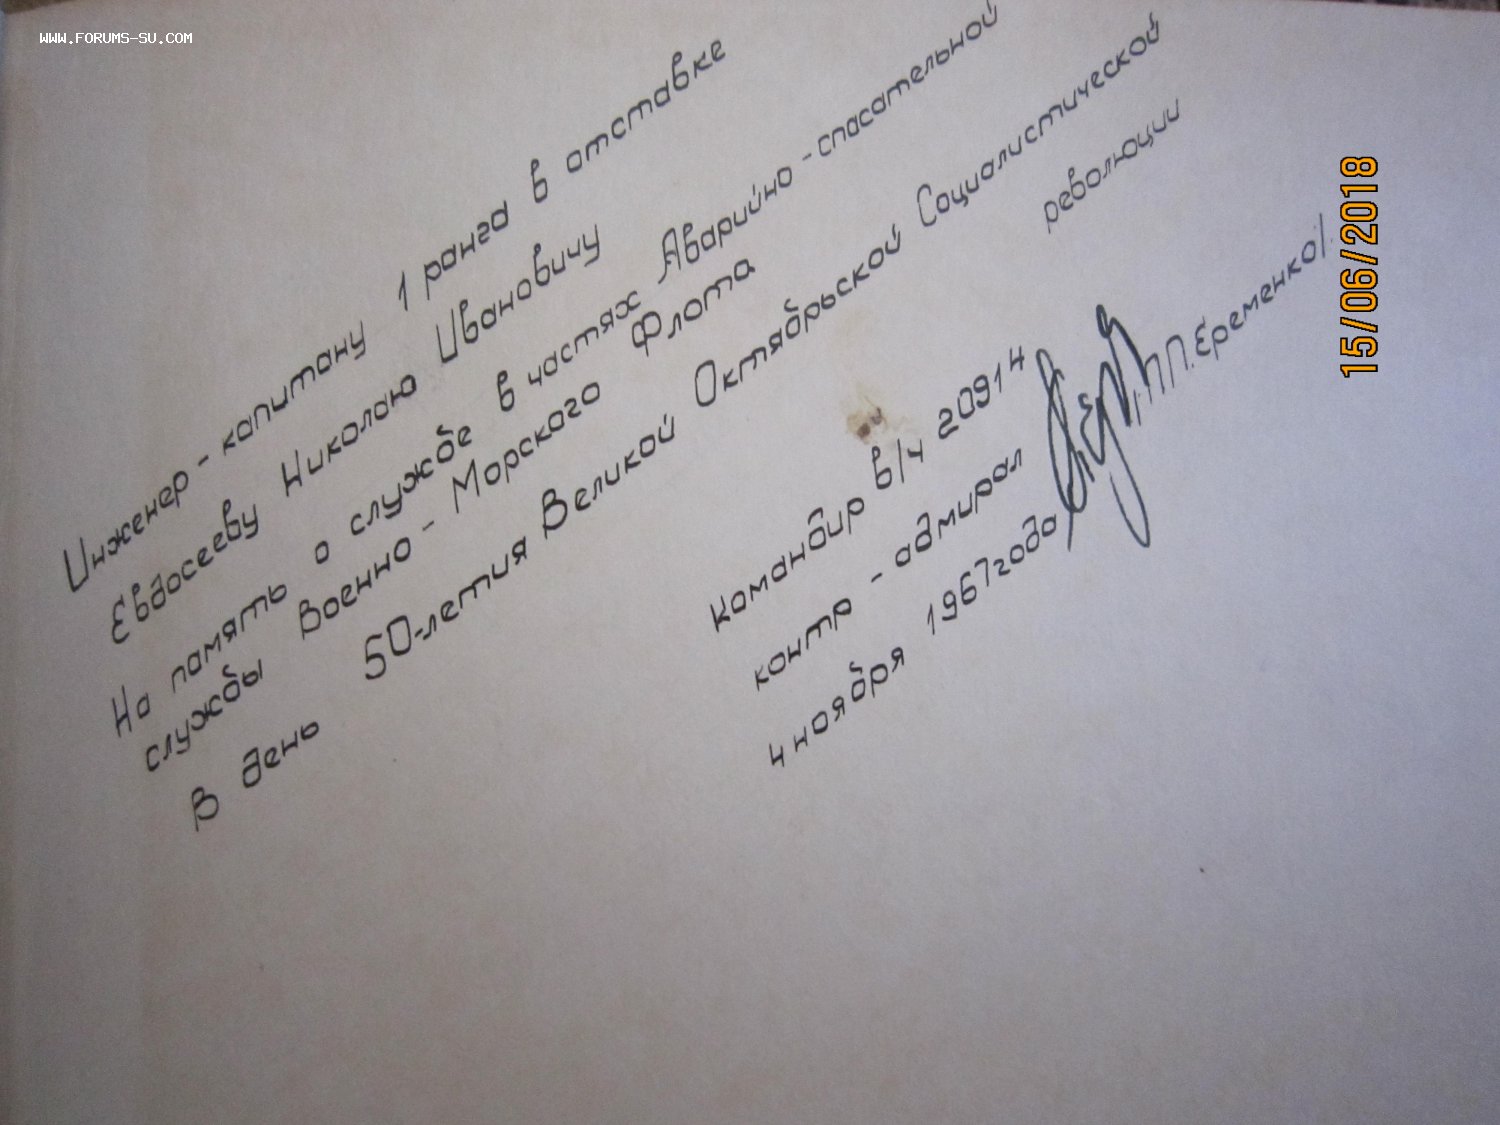 WWW.FORUMS-SU.COM
Инженер - капитану 1 ранга в отставке
Евдосееву Николаю Ивановичу
На память о службе в частях Аварийно - спасательной
службы Военно - Морского Флота
В день 50-летия Великой Октябрьской Социалистической
революции
Командир в/ч 20914
контр - адмирал /П.П. Еременко/.
4 ноября 1967 года
15/06/2018